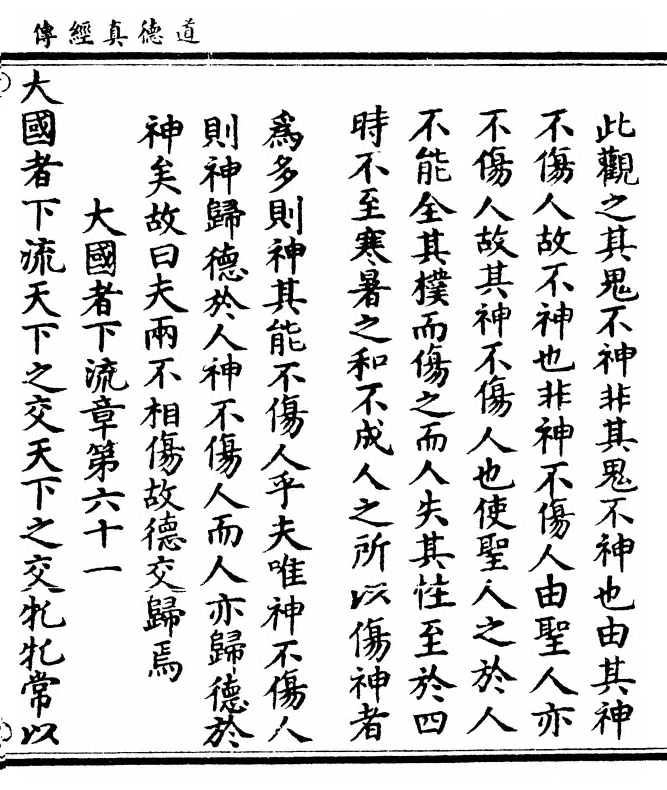 道德真經傳
此觀之其鬼不神非其鬼不神也由其神
不傷人故不神也非神不傷人由聖人亦
不傷人故其神不傷人也使聖人之於人
不能全其樸而傷之而人失其性至於四
時不至寒暑之和不成人之所以傷神者
為多則神其能不傷人乎夫唯神不傷人
則神歸德於人神不傷人而人亦歸德於
神矣故曰夫兩不相傷故德交歸焉
大國者下流章第六十一
大國者下流天下之交天下之交牝牝常以